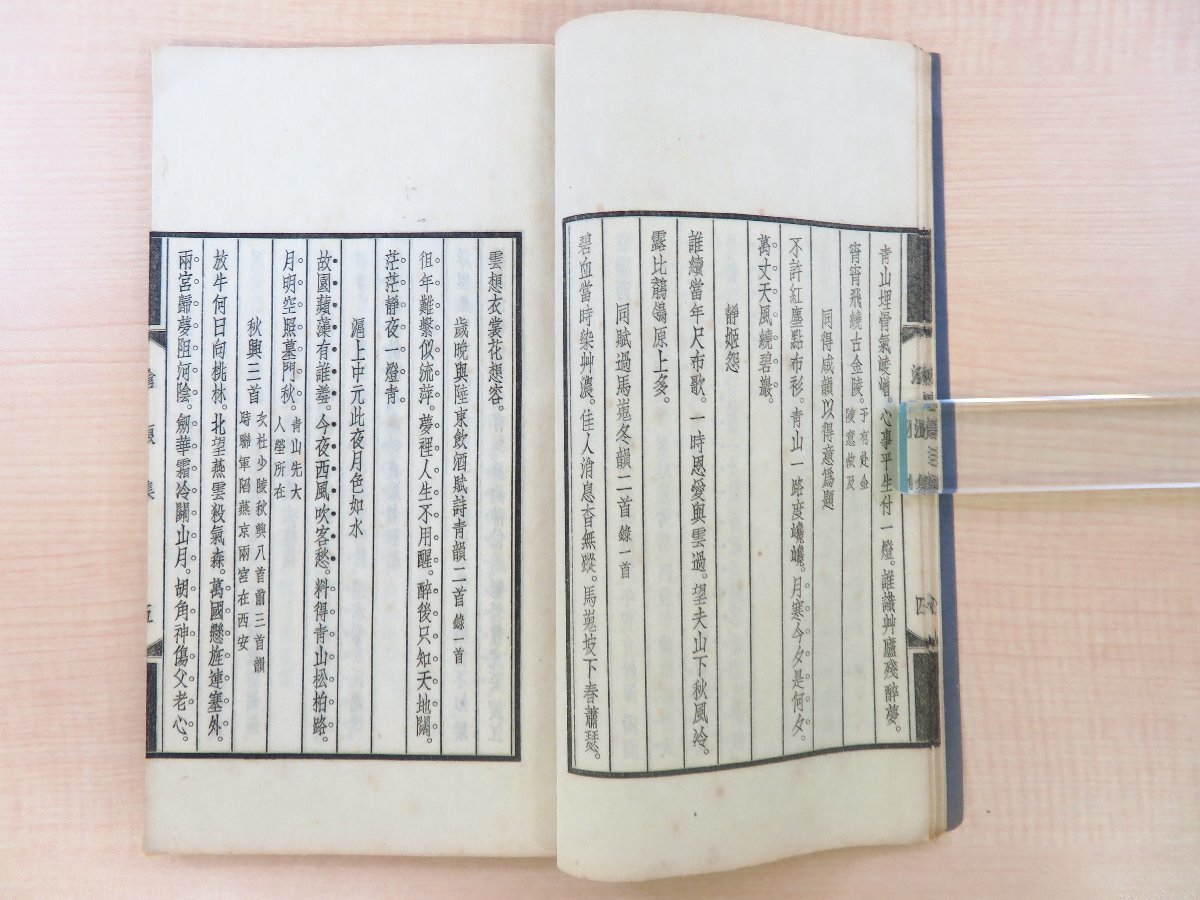 青山埋骨氣崚嶒。心事平生付一燈。誰識艸廬殘醉夢。
宵宵飛繞古金陵。予有赴金
陵意故及
同得咸韻以得意爲題
不許紅塵點布衫。青山一路度巉巉。月寒今夕是何夕。
萬丈天風繞碧巖。
靜姬怨
誰續當年尺布歌。一時恩愛與雲過。望夫山下秋風冷。
露比鶺鴒原上多。
同賦過馬嵬冬韻二首 錄一首
碧血當時染艸濃。佳人消息杳無蹤。馬嵬坡下春蕭瑟。
四
雲想衣裳花想容。
歲晩與陸東飮酒賦詩靑韻二首 錄一首
徂年難繫似流萍。夢裡人生不用醒。醉後只知天地闊。
茫茫靜夜一燈靑。
滬上中元此夜月色如水
故園蘋藻有誰羞。今夜西風吹客愁。料得靑山松柏路。
月明空照墓門秋。靑山先大
人塋所在
秋興三首 次杜少陵秋興八首前三首韻
時聯軍陷燕京兩宮在西安
放牛何日向桃林。北望燕雲殺氣森。萬國懸旌連塞外。
兩宮歸夢阻河陰。劒華霜冷關山月。胡角神傷父老心。
五